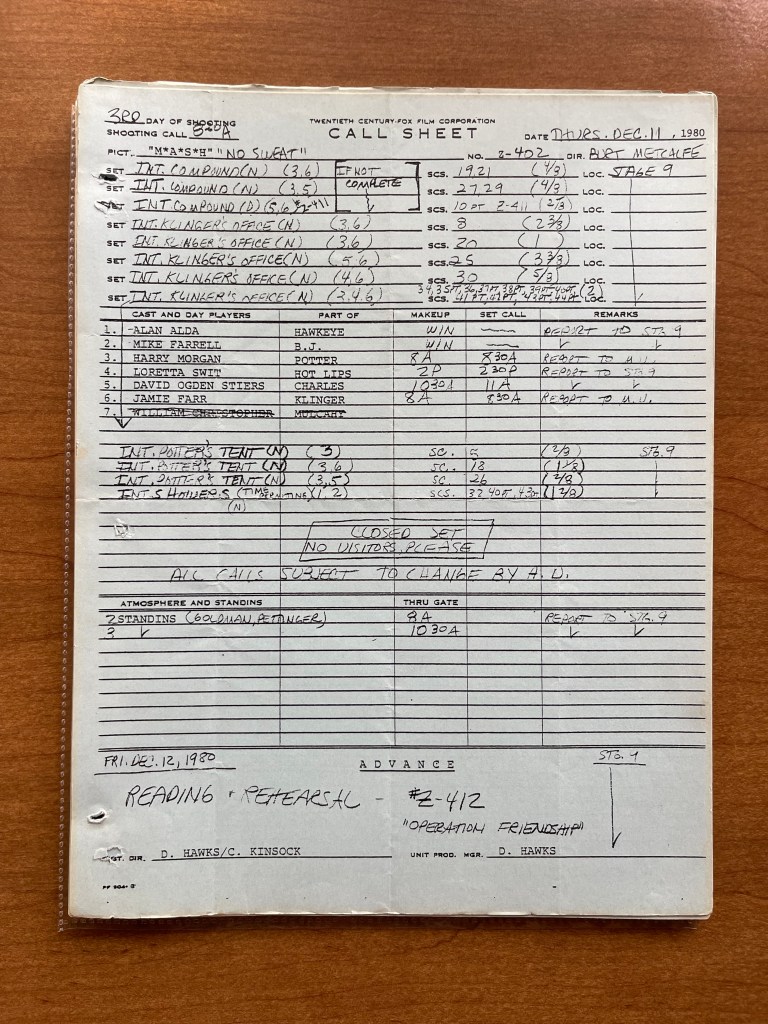 3RD DAY OF SHOOTING
SHOOTING CALL 820A
TWENTIETH CENTURY-FOX FILM CORPORATION
CALL SHEET
DATE THURS. DEC. 11, 1980
PICT. "M*A*S*H" "NO SWEAT" NO. Z-402 DIR. BURT METCALFE
SET INT. COMPOUND (N) (3,6) IF NOT SCS. 19,21 (4/3) LOC. STAGE 9
SET INT. COMPOUND (N) (3,5) COMPLETE SCS. 27,29 (4/3) LOC.
SET INT COMPOUND (D) (5,6) Z-411 SCS. 10 PT Z-411 (2/3) LOC.
SET INT. KLINGER'S OFFICE (N) (3,6) SCS. 8 (2 3/3) LOC.
SET INT. KLINGER'S OFFICE (N) (3,6) SCS. 20 (1) LOC.
SET INT. KLINGER'S OFFICE (N) (5,6) SCS. 25 (3 3/3) LOC.
SET INT. KLINGER'S OFFICE (N) (4,6) SCS. 30 (5/3) LOC.
SET INT. KLINGER'S OFFICE (N) (2,4,6) SCS. LOC.
CAST AND DAY PLAYERS PART OF MAKEUP SET CALL REMARKS
1. ALAN ALDA HAWKEYE W/N REPORT TO STG. 9
2. MIKE FARRELL B.J. W/N
3. HARRY MORGAN POTTER 8A 830A REPORT TO M.U.
4. LORETTA SWIT HOT LIPS 2P 230P REPORT TO STG. 9
5. DAVID OGDEN STIERS CHARLES 1030A 11A
6. JAMIE FARR KLINGER 8A 830A REPORT TO M.U.
7. WILLIAM CHRISTOPHER MULCAHY
INT. POTTER'S TENT (N) (3) SC. 5 (2/3) STG. 9
INT. POTTER'S TENT (N) (3,6) SC. 18 (1 1/3)
INT. POTTER'S TENT (N) (3,5) SC. 26 (2/3)
INT. SHOWERS (1,2) SCS. (1 2/3)
(N)
CLOSED SET
NO VISITORS, PLEASE
ALL CALLS SUBJECT TO CHANGE BY A.D.
ATMOSPHERE AND STANDINS THRU GATE
2 STANDINS (GOLDMAN, PETTINGER) 8A REPORT TO STG. 9
3 1030A
FRI. DEC. 12, 1980 ADVANCE STG. 9
READING + REHEARSAL - #Z-412
"OPERATION FRIENDSHIP"
D. HAWKS/C. KINSOCK UNIT PROD. MGR. D. HAWKS